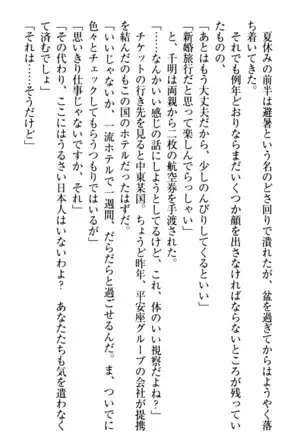 夏休みの前半は避暑という名のどさ回りで潰れたが、盆を過ぎてからはようやく落
ち着いてきた。
それでも例年どおりならまだいくつか顔を出さなければならないところが残ってい
たものの、
「あとはもう大丈夫だから、少しのんびりしてくるといい」
「新婚旅行だと思って楽しんでらっしゃい」
と、千明は両親から二枚の航空券を手渡された。
「……なんかいい感じの話にしようとしてるけど、これ、体のいい視察だよね?」
チケットの行き先を見ると中東某国。ちょうど昨年、平安座グループの会社が提携
を結んだのもこの国のホテルだったはずだ。
「いいじゃないか、一流ホテルで一週間、だらだらと過ごせるんだ。ま、ついでに
色々とチェックしてもらうつもりではいるが」
「思いきり仕事じゃないですか、それ」
「その代わり、ここにはうるさい日本人はいないわよ? あなたたちも気を遣わなく
て済むでしょ」
「それは……そうだけど」